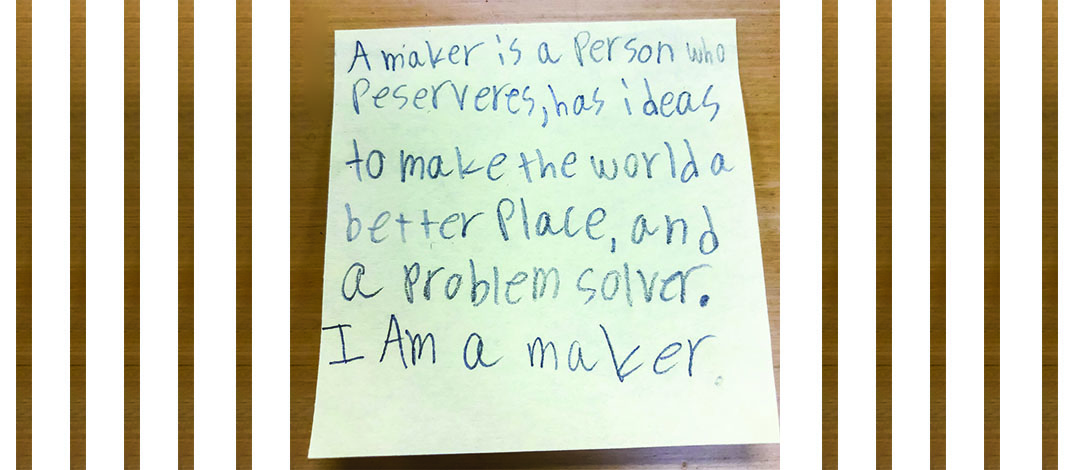 A maker is a Person who
Peserveres, has ideas
to make the world a
better Place, and
a Problem solver.
I Am a maker.